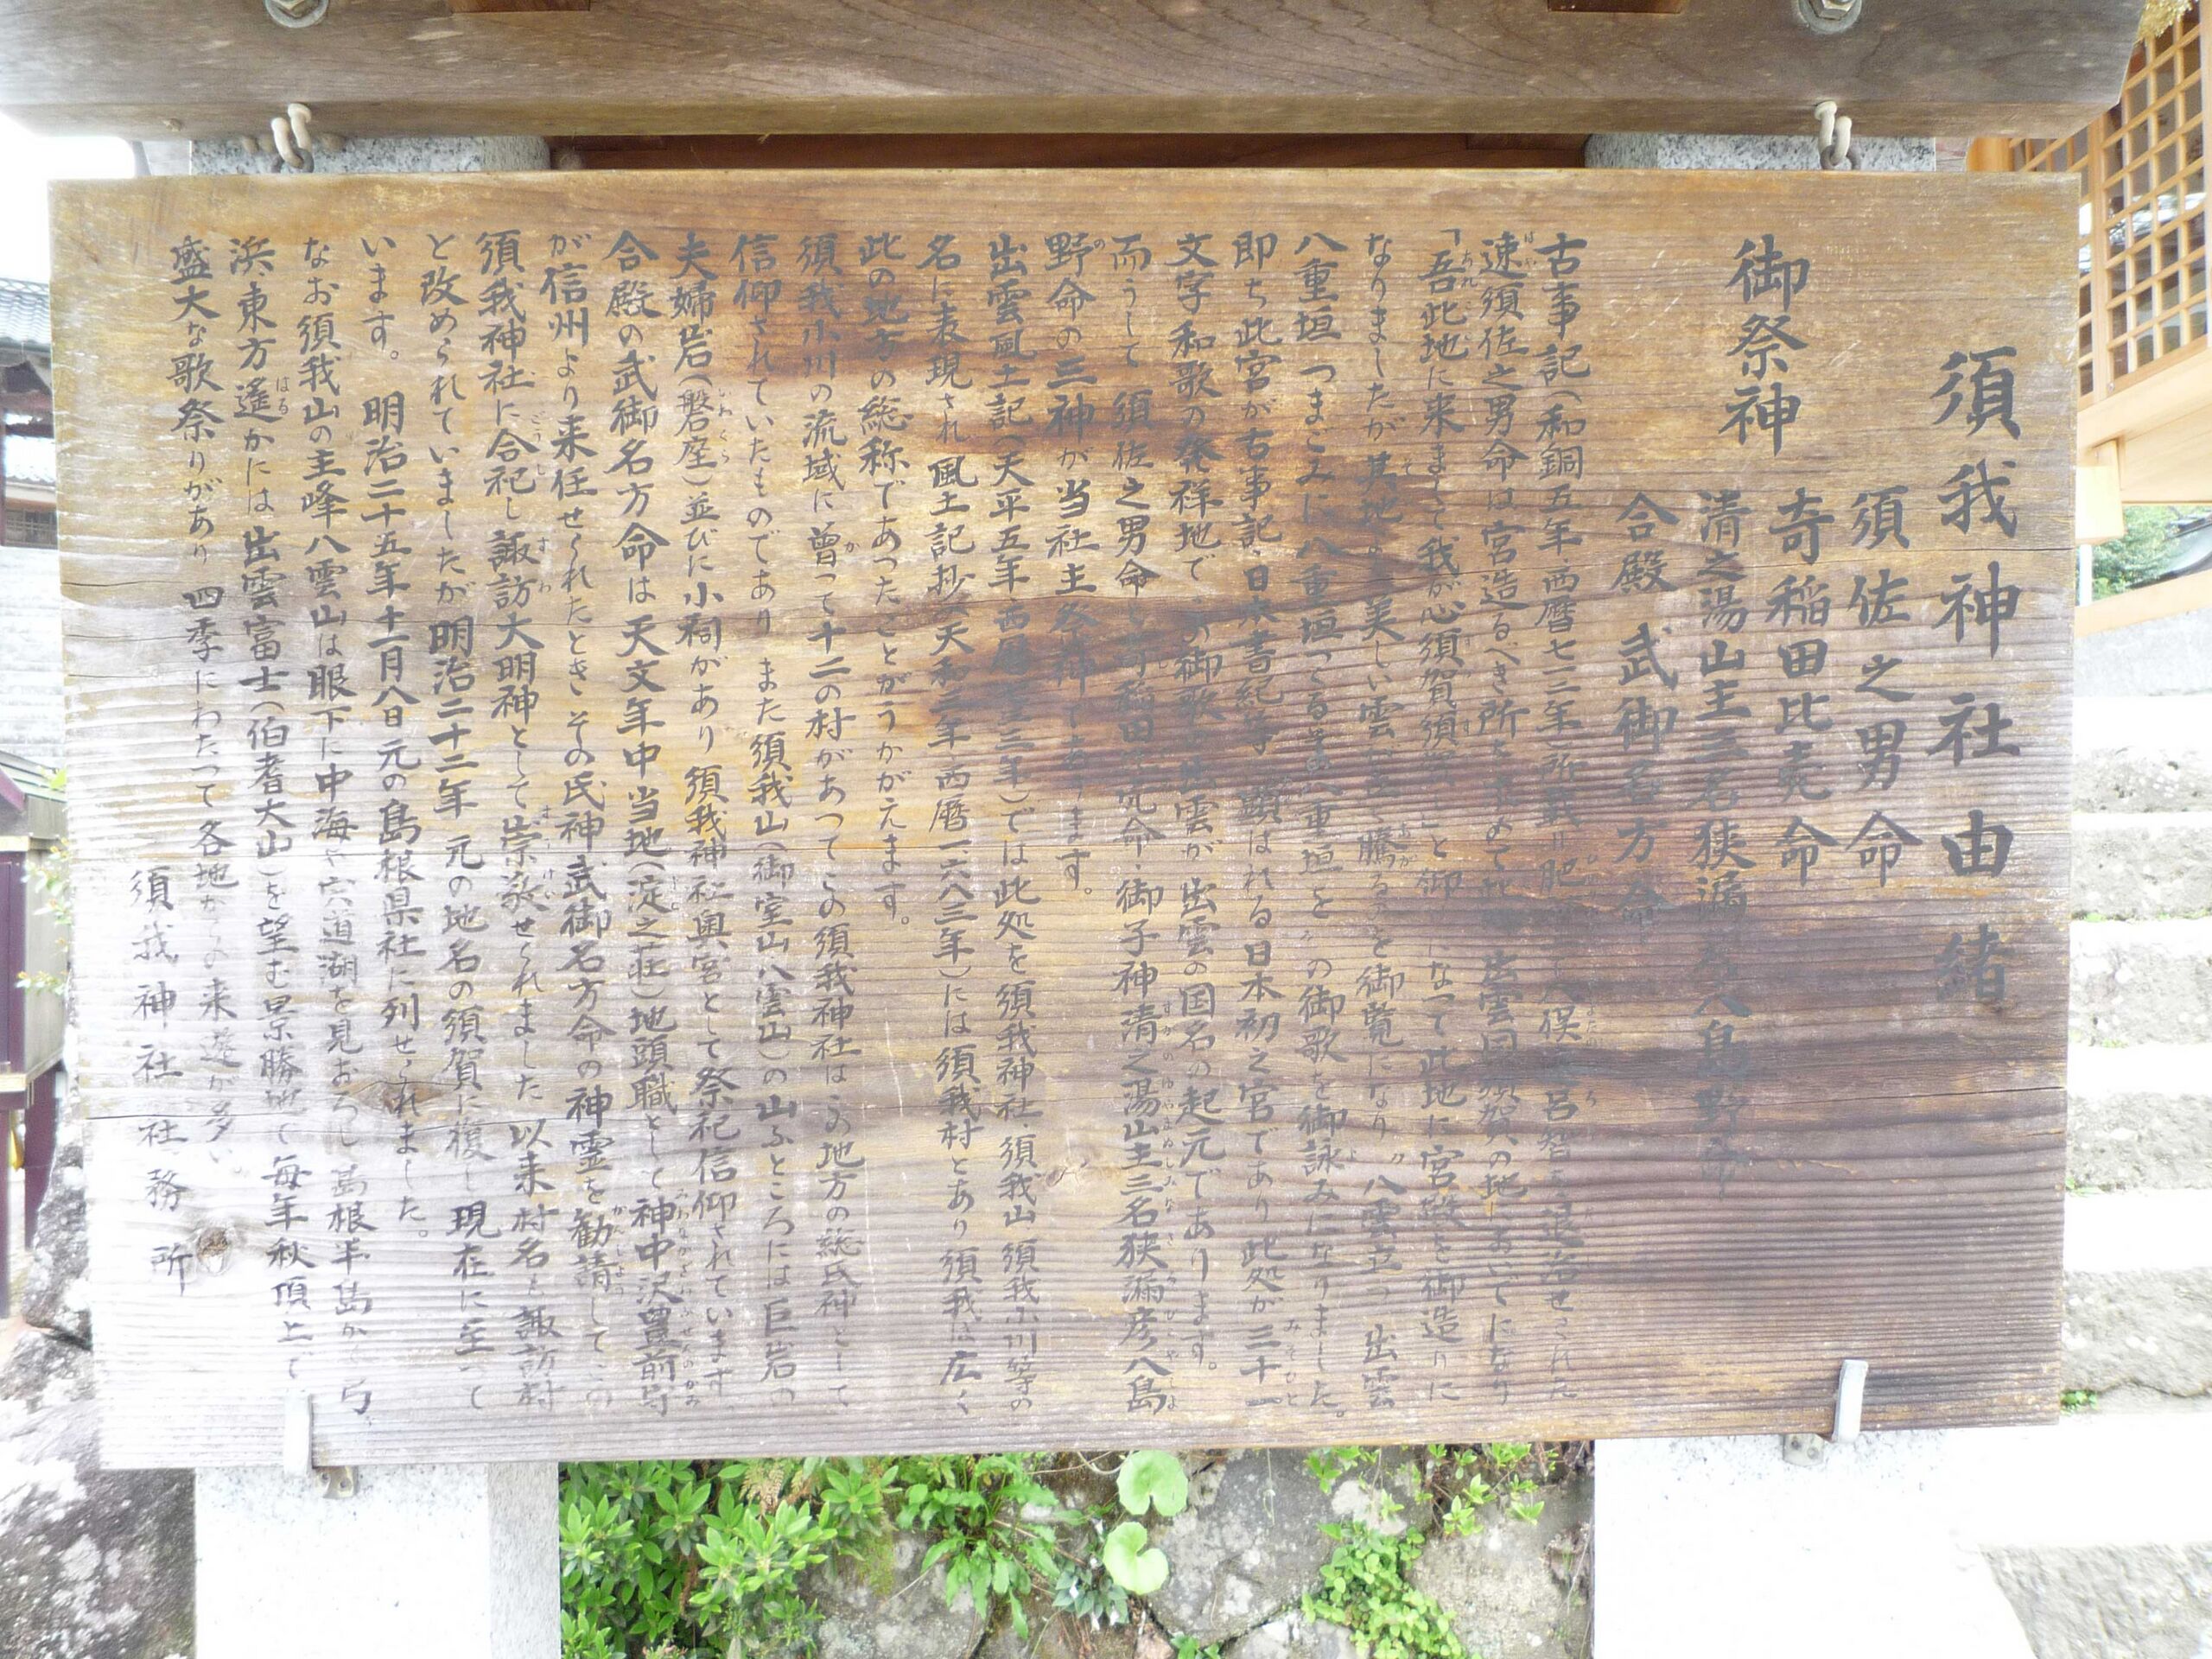 須我神社由緒
御祭神
須佐之男命
奇稲田比売命
清之湯山主三名狭漏彦八島野命
合殿 武御名方命
古事記(和銅五年、西暦七一二年)所載 肥 八俣遠呂智を退治せられた
速須佐之男命は宮造るべき所を求めて 出雲国須賀の地においでになり
「吾此地に来まして我が心須賀須賀し」と になって此地に宮殿を御造りに
なりましたが其地 美しい雲 騰るのを御覧になり〝八雲立つ 出雲
八重垣 つまごみに 八重垣つくる その八重垣を〟の御歌を御詠みになりました。
即ち此宮が古事記、日本書紀等に顕はれる日本初之宮であり此処が三十一
文字和歌の発祥地で の御歌の出雲が 出雲の国名の起元であります。
而うして 須佐之男命と 稲田 命、御子神清之湯山主三名狭漏彦八島
野命の三神が当社主祭神であります。
出雲風土記(天平五年 西暦七三三年)では此処を須我神社、須我山、須我小川等の
名に表現され 風土記抄(天和三年、西暦一六八三年)には須我村とあり須我は広く
此の地方の総称であつたことがうかがえます。
須我小川の流域に曽つて十二の村があつてこの須我神社はこの地方の総氏神として
信仰されていたものであり また須我山(御室山、八雲山)の山ふところには巨岩の
夫婦岩(磐座)並びに小祠があり 須我神社奥宮として祭祀信仰されています
合殿の武御名方命は天文年中当地(淀之荘)地頭職として神中沢豊前守
が信州より来任せられたとき その氏神武御名方命の神霊を勧請してこの
須我神社に合祀し 諏訪大明神として崇敬せられました 以来村名も諏訪村
と改められていましたが明治二十二年 元の地名の須賀に復し現在に至って
います。 明治二十五年十一月八日元の島根県社に列せられました。
なお須我山の主峰八雲山は眼下に中海や宍道湖を見おろし 島根半島から弓ヶ
浜東方遙かには出雲富士(伯耆大山)を望む景勝地で 毎年秋頂上で
盛大な歌祭りがあり 四季にわたって各地からの来遊が多い。
須我神社社務所